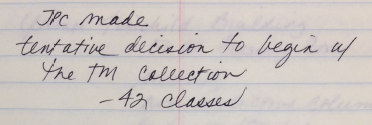 JPC made
tentative decision to begin w/
the TM Collection
- 42 classes